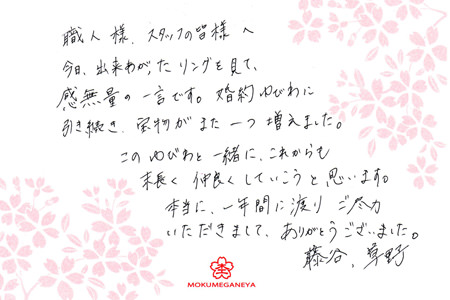 職人様、スタッフの皆様へ
今日、出来あがったリングを見て、
感無量の一言です。婚約ゆびわに
引き続き、宝物がまた一つ増えました。
このゆびわと一緒に、これからも
末長く仲良くしていこうと思います。
本当に、一年間に渡りご尽力
いただきまして、ありがとうございました。
藤谷、草野
MOKUMEGANEYA